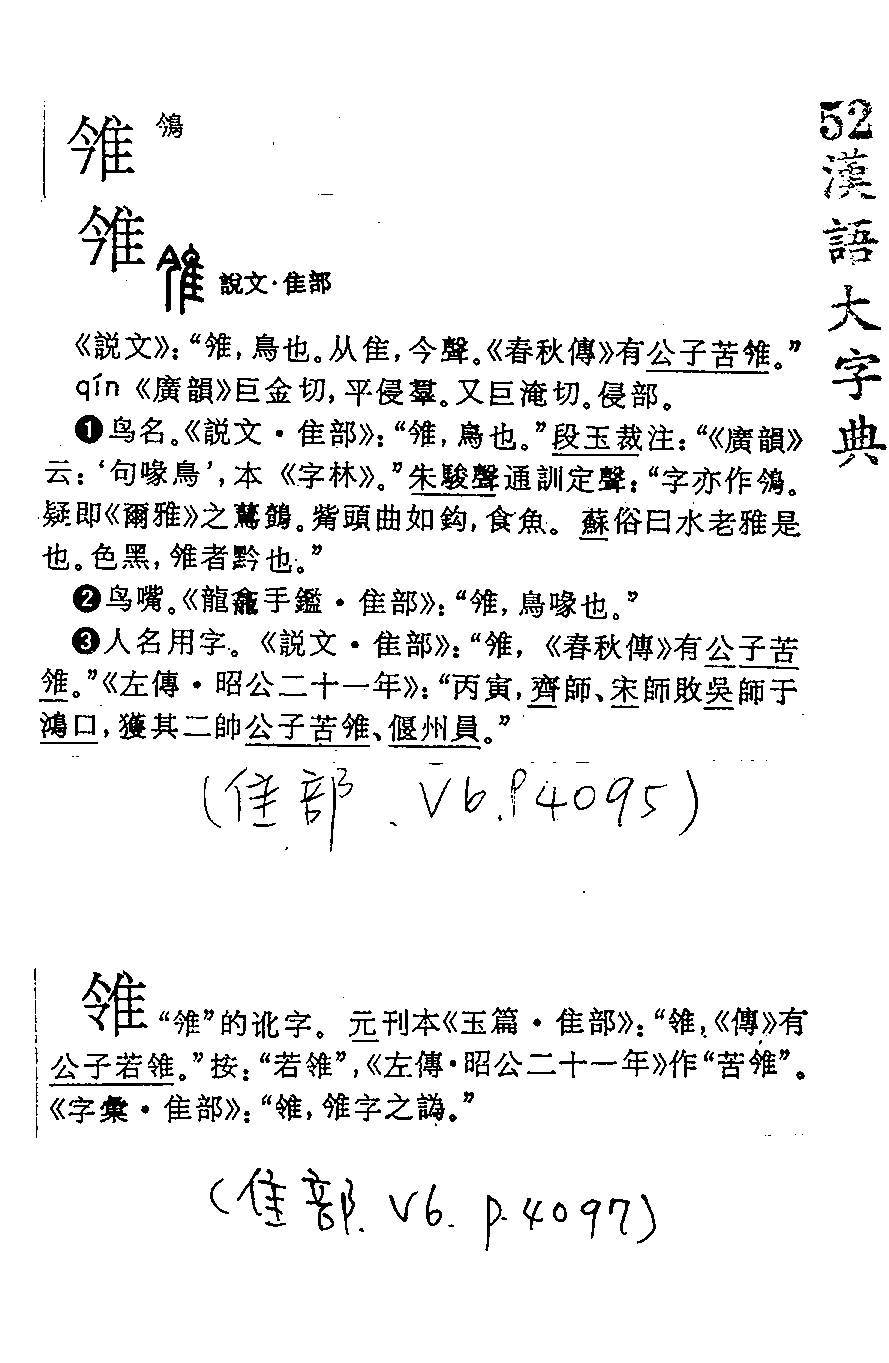 52 漢語大字典
雂 鳹
雂 說文·隹部
《説文》：“雂，鳥也。从隹，今聲。《春秋傳》有公子苦雂。”
qín《廣韻》巨金切，平侵羣。又巨淹切。侵部。
❶鸟名。《説文·隹部》：“雂，鳥也。”段玉裁注：“《廣韻》
云：‘句喙鳥’，本《字林》。”朱駿聲通訓定聲：“字亦作鳹。
疑即《爾雅》之。觜頭曲如鈎，食魚。蘇俗曰水老雅是
也。色黑，雂者黔也。”
❷鸟嘴。《龍龕手鑑·隹部》：“雂，鳥喙也。”
❸人名用字。《説文·隹部》：“雂，《春秋傳》有公子苦
雂。”《左傳·昭公二十一年》：“丙寅，齊師、宋師敗吳師于
鴻口，獲其二帥公子苦雂、偃州員。”
(隹部.V6.P4095)
“雂”的讹字。元刊本《玉篇·隹部》：“，《傳》有
公子若。”按：“若”，《左傳·昭公二十一年》作“苦雂”。
《字彙·隹部》：“，雂字之譌。”
(隹部.V6.p.4097)